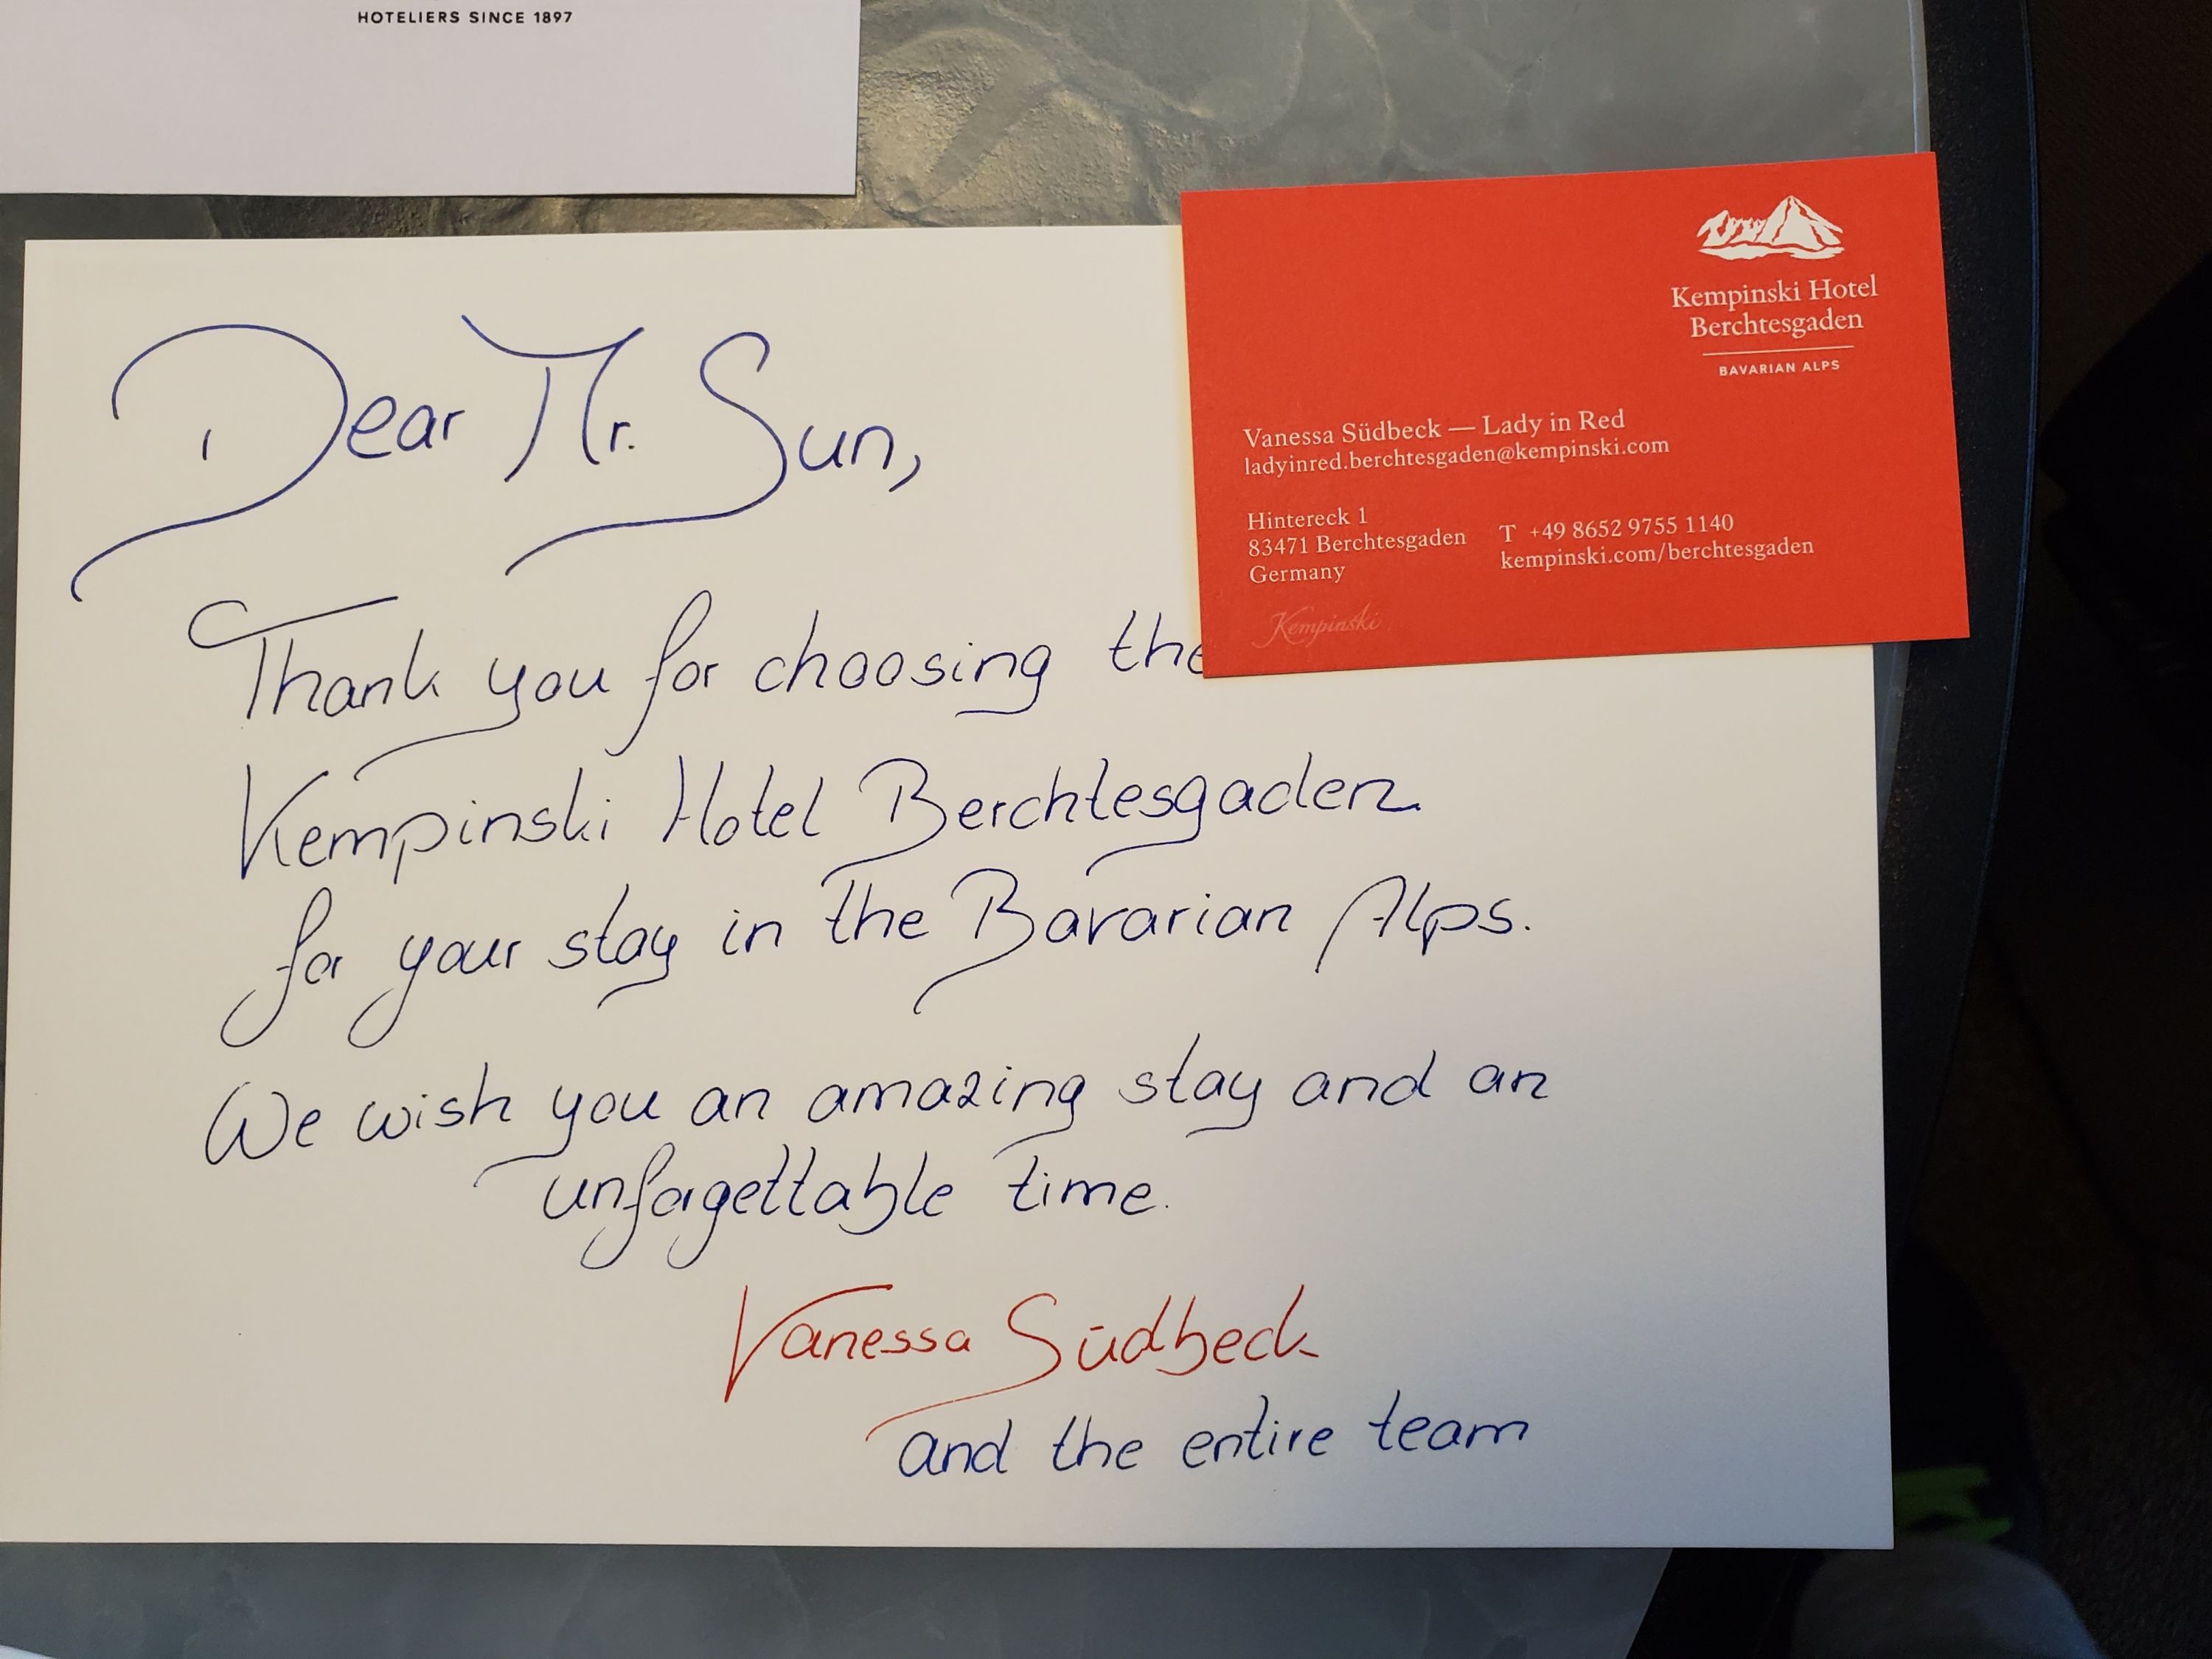 HOTELIERS SINCE 1897
Kempinski Hotel
Berchtesgaden
BAVARIAN ALPS
Vanessa Südbeck — Lady in Red
ladyinred.berchtesgaden@kempinski.com
Hintereck 1
83471 Berchtesgaden
Germany
T +49 8652 9755 1140
kempinski.com/berchtesgaden
Kempinski
Dear Mr. Sun,
Thank you for choosing the
Kempinski Hotel Berchtesgaden
for your stay in the Bavarian Alps.
We wish you an amazing stay and an
unforgettable time.
Vanessa Südbeck
and the entire team